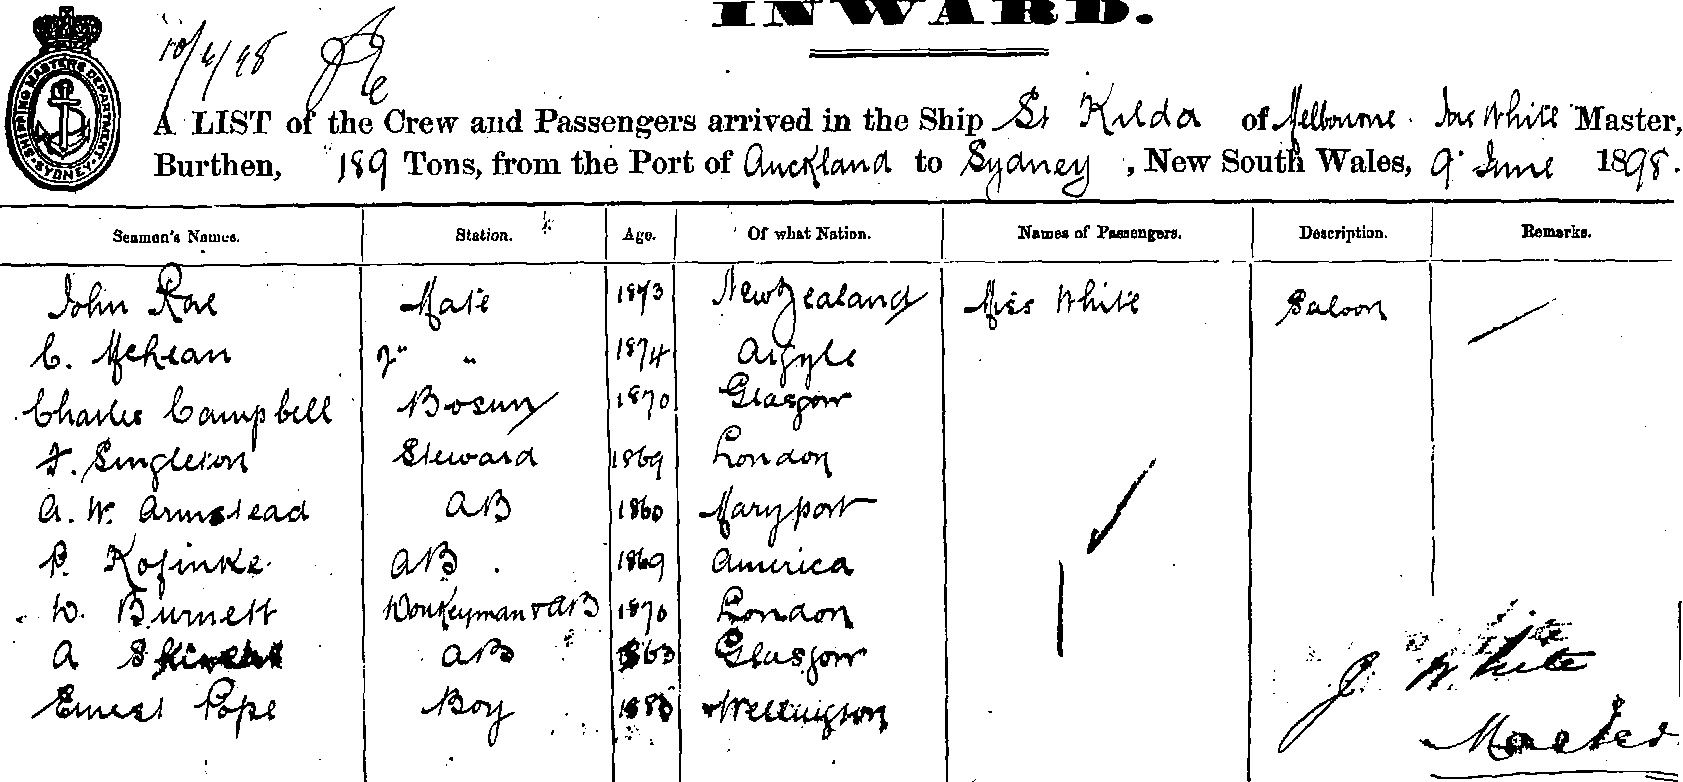 INWARD.
10/6/98
SHIPPING MASTERS DEPARTMENT SYDNEY
A LIST of the Crew and Passengers arrived in the Ship St Kilda of Melbourne Jas White Master,
Burthen, 189 Tons, from the Port of Auckland to Sydney, New South Wales, 9 June 1898.
Seamen's Names. Station. Age. Of what Nation. Names of Passengers. Description. Remarks.
John Rae Mate 1873 New Zealand Miss White Saloon
C. McLean 2" " 1874 Argyle
Charles Campbell Bosun 1870 Glasgow
F. Singleton Steward 1869 London
A. W. Armstead AB 1860 Maryport
P. Kofinke AB. 1869 America
W. Burnett Donkeyman & AB 1870 London
A AB 1863 Glasgow
Ernest Pope Boy Wellington
J. White
Master